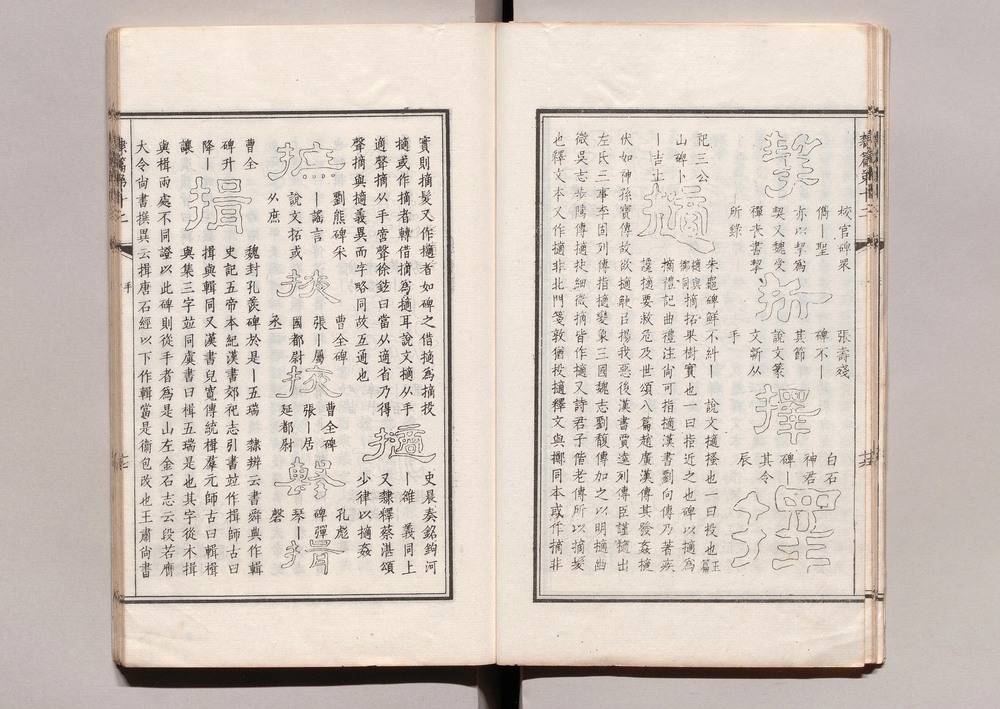 隸篇弟十二
校官碑眾
儁丨聖
亦以挈為
契又魏受
禪表書挈
所錄
折
張壽殘
碑不丨
其節
說文篆
文斲从
手
擇
白石
神君
碑丨
其令
辰
祀三公
山碑卜
丨吉土
擿
朱龜碑鮮不糾丨 說文擿搔也一曰投也
擿與擲同摘拓果樹實也一曰指近之也碑以擿為
摘禮記曲禮注尚可指擿漢書劉向傳乃著疾
讒擿要救危及世頌八篇趙廣漢傳其發姦擿
伏如神孫寶傳故欲擿觖㠯揚我惡後漢書賈逵列傳臣謹擿出
左氏三事李固列傳指擿變象三國魏志劉馥傳加之以明擿幽
微吳志步隲傳擿抉細微摘皆作擿又詩君子偕老傳所以摘髮
也釋文本又作擿非北門箋敦猶投擿釋文與擲同本或作摘非
實則摘髮又作擿者如碑之借擿為摘投
擿或作摘者轉借摘為擿耳說文擿从手
適聲摘从手啻聲徐鉉曰當从適省乃得
聲摘與擿義異而字略同故互通也
擿
史晨奏銘鉤河
丨雒 義同上
又隸釋蔡湛頌
少律以擿姦
摭
劉熊碑采
丨謠言
說文拓或
从庶
挾
曹全碑
張丨屬
國都尉
丞
挾
曹全碑
張丨居
延都尉
孔彪
碑彈
琴丨
磬
揖
曹全
碑升
降丨
讓
揖
魏封孔羨碑於是丨五瑞 隸辨云書舜典作輯
史記五帝本紀漢書郊祀志引書竝作揖師古曰
揖與輯同又漢書兒寬傳統楫羣元師古曰輯楫
與集三字竝同虞書曰楫五瑞是也其字從木揖
與楫兩處不同證以此碑則從手者為是山左金石志云段若膺
大令尚書撰異云揖唐石經以下作輯當是衞包改也王肅尚書
隸篇弟十二
手